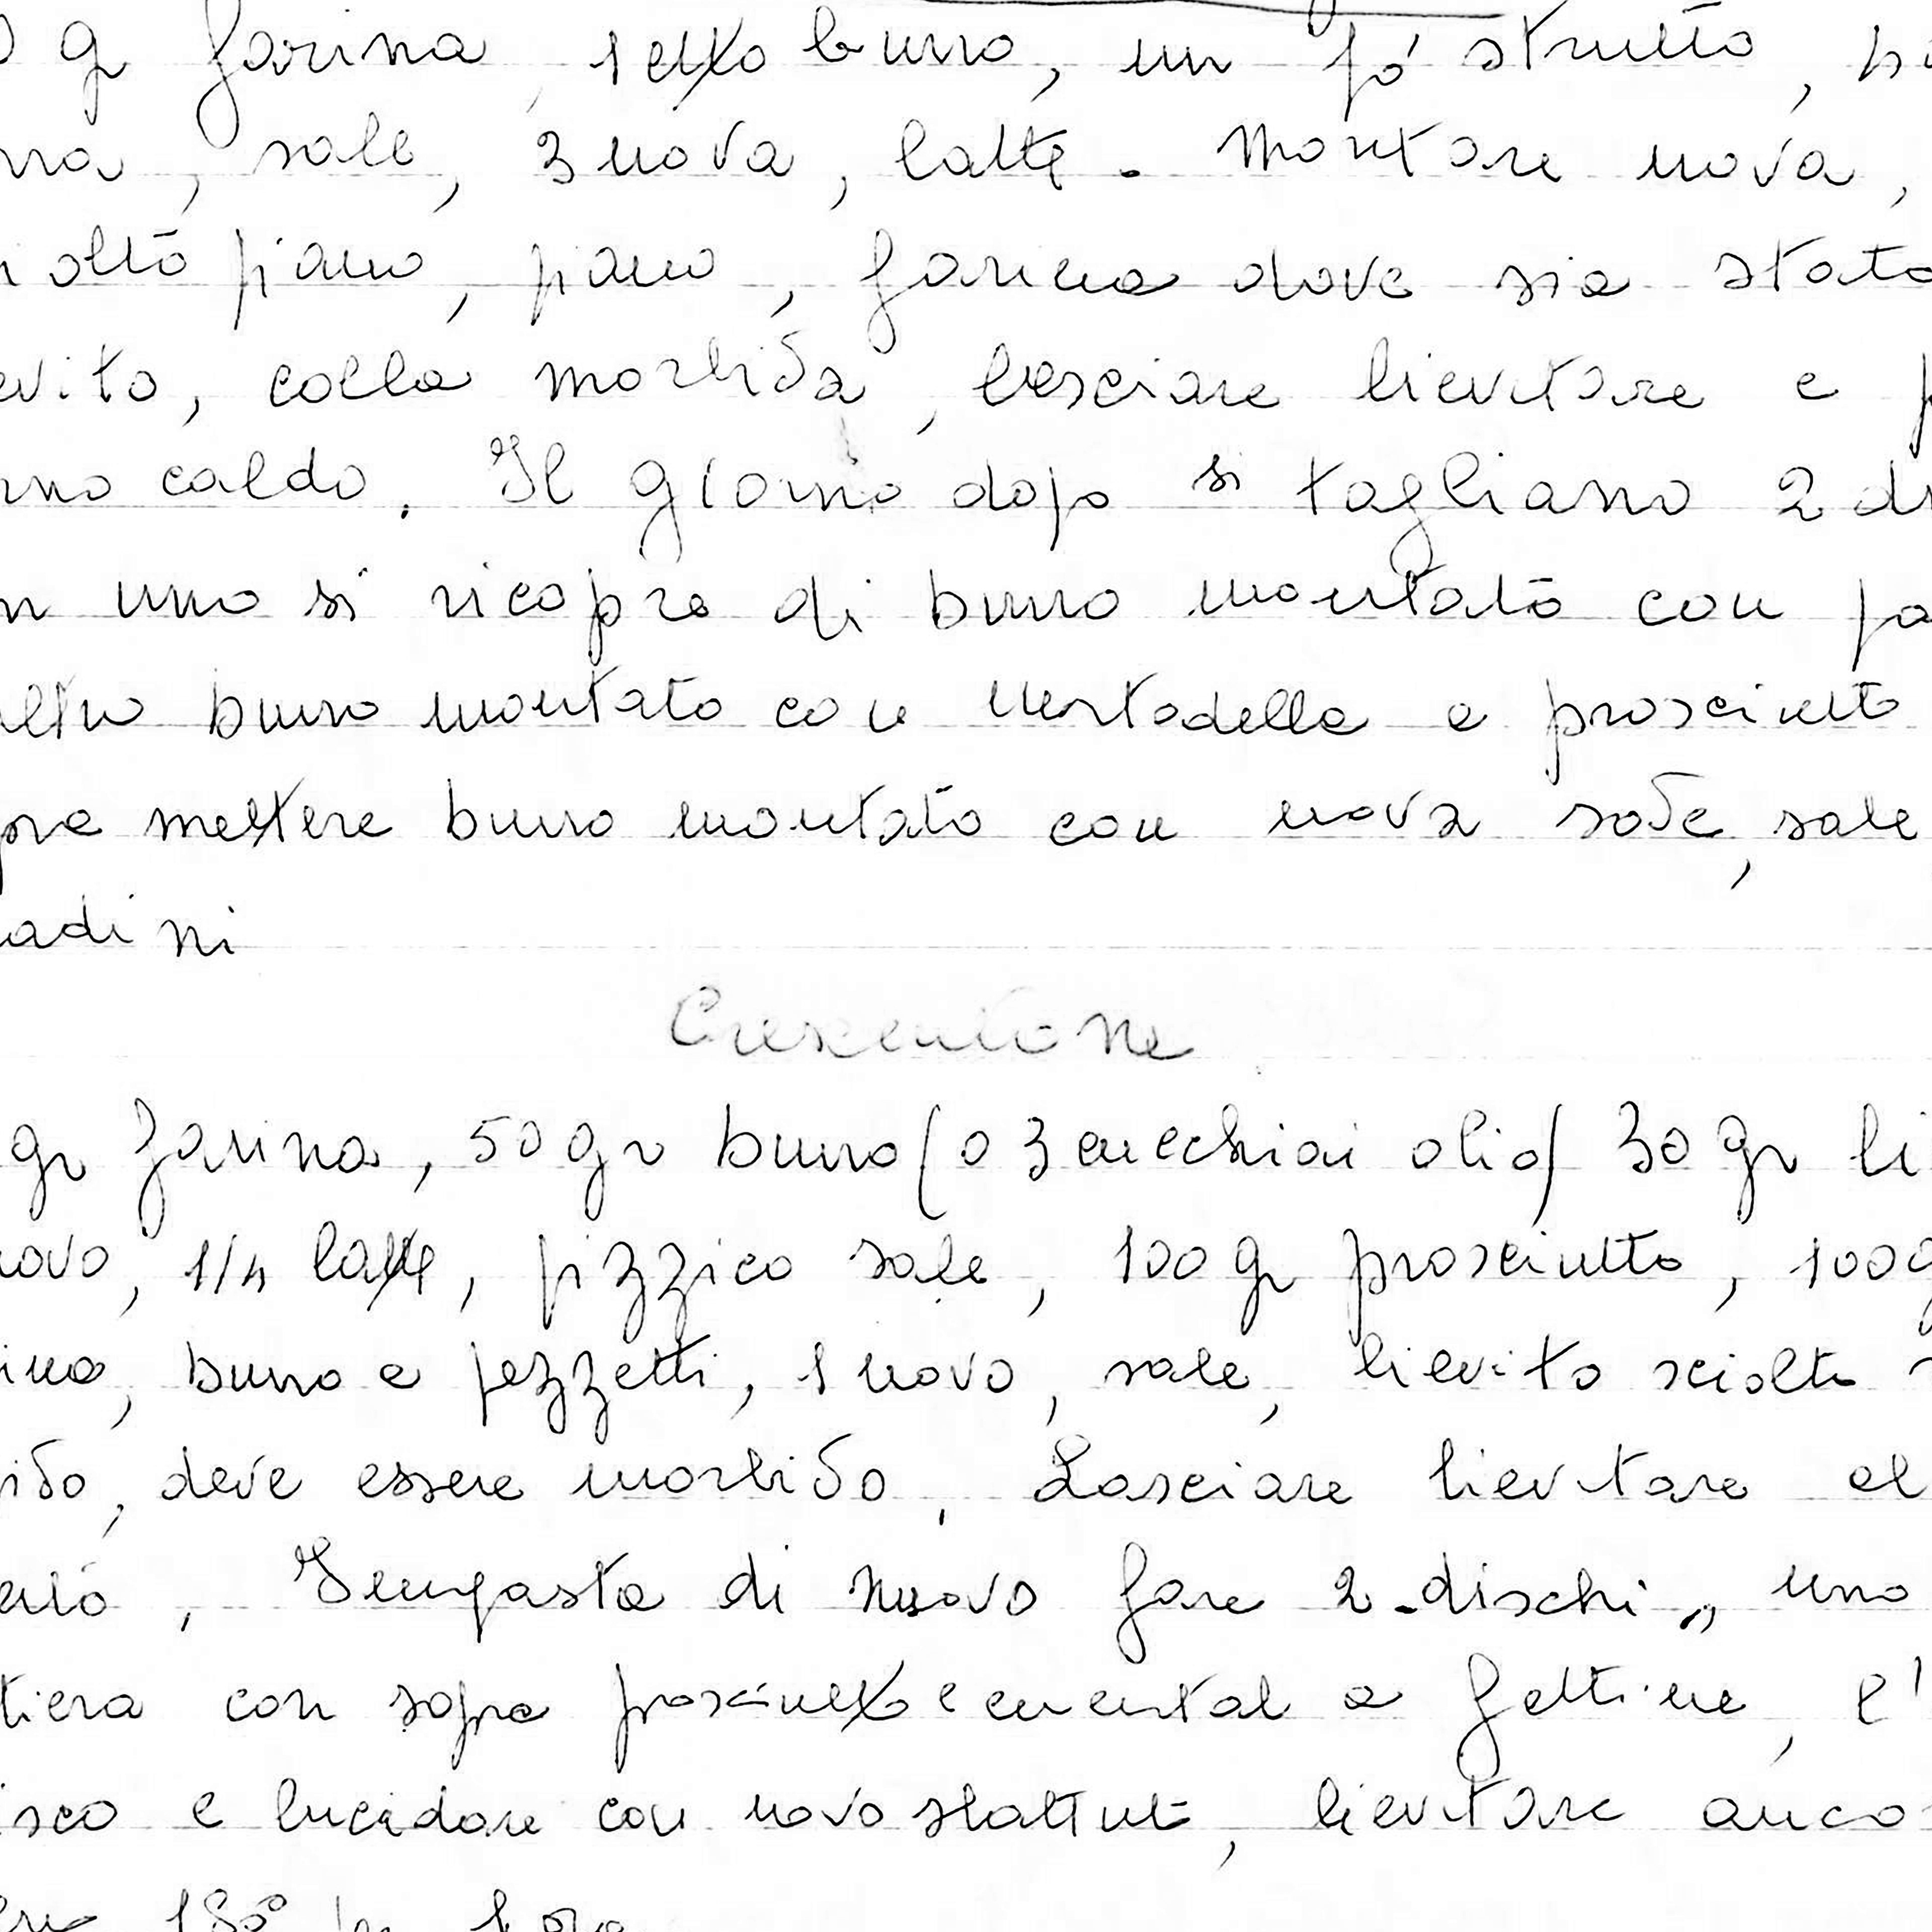 g farina, 1 etto burro, un pó strutto,
sale, 3 uova, latte. Montare uova,
piano, piano, farina dove sia stato
colla morbida, lasciare lievitare e
caldo. Il giorno dopo si tagliano 2
uno si ricopre di burro montato con
burro montato con mortadella e prosciutto
mettere burro montato con uova sode, sale
adi ni
Crescentone
gr farina, 50 gr burro (o 3 cucchiai olio) 30 gr li
uovo, 1/4 latte, pizzico sale, 100 gr prosciutto, 100 g
burro a pezzetti, 1 uovo, sale, lievito sciolto
deve essere morbido. Lasciare lievitare al
Impasta di nuovo fare 2 dischi, uno
tiera con sopra prosciutto e emental a fettine, l'
isco e lucidare con uovo sbattuto, lievitare anco
180° 1 ora